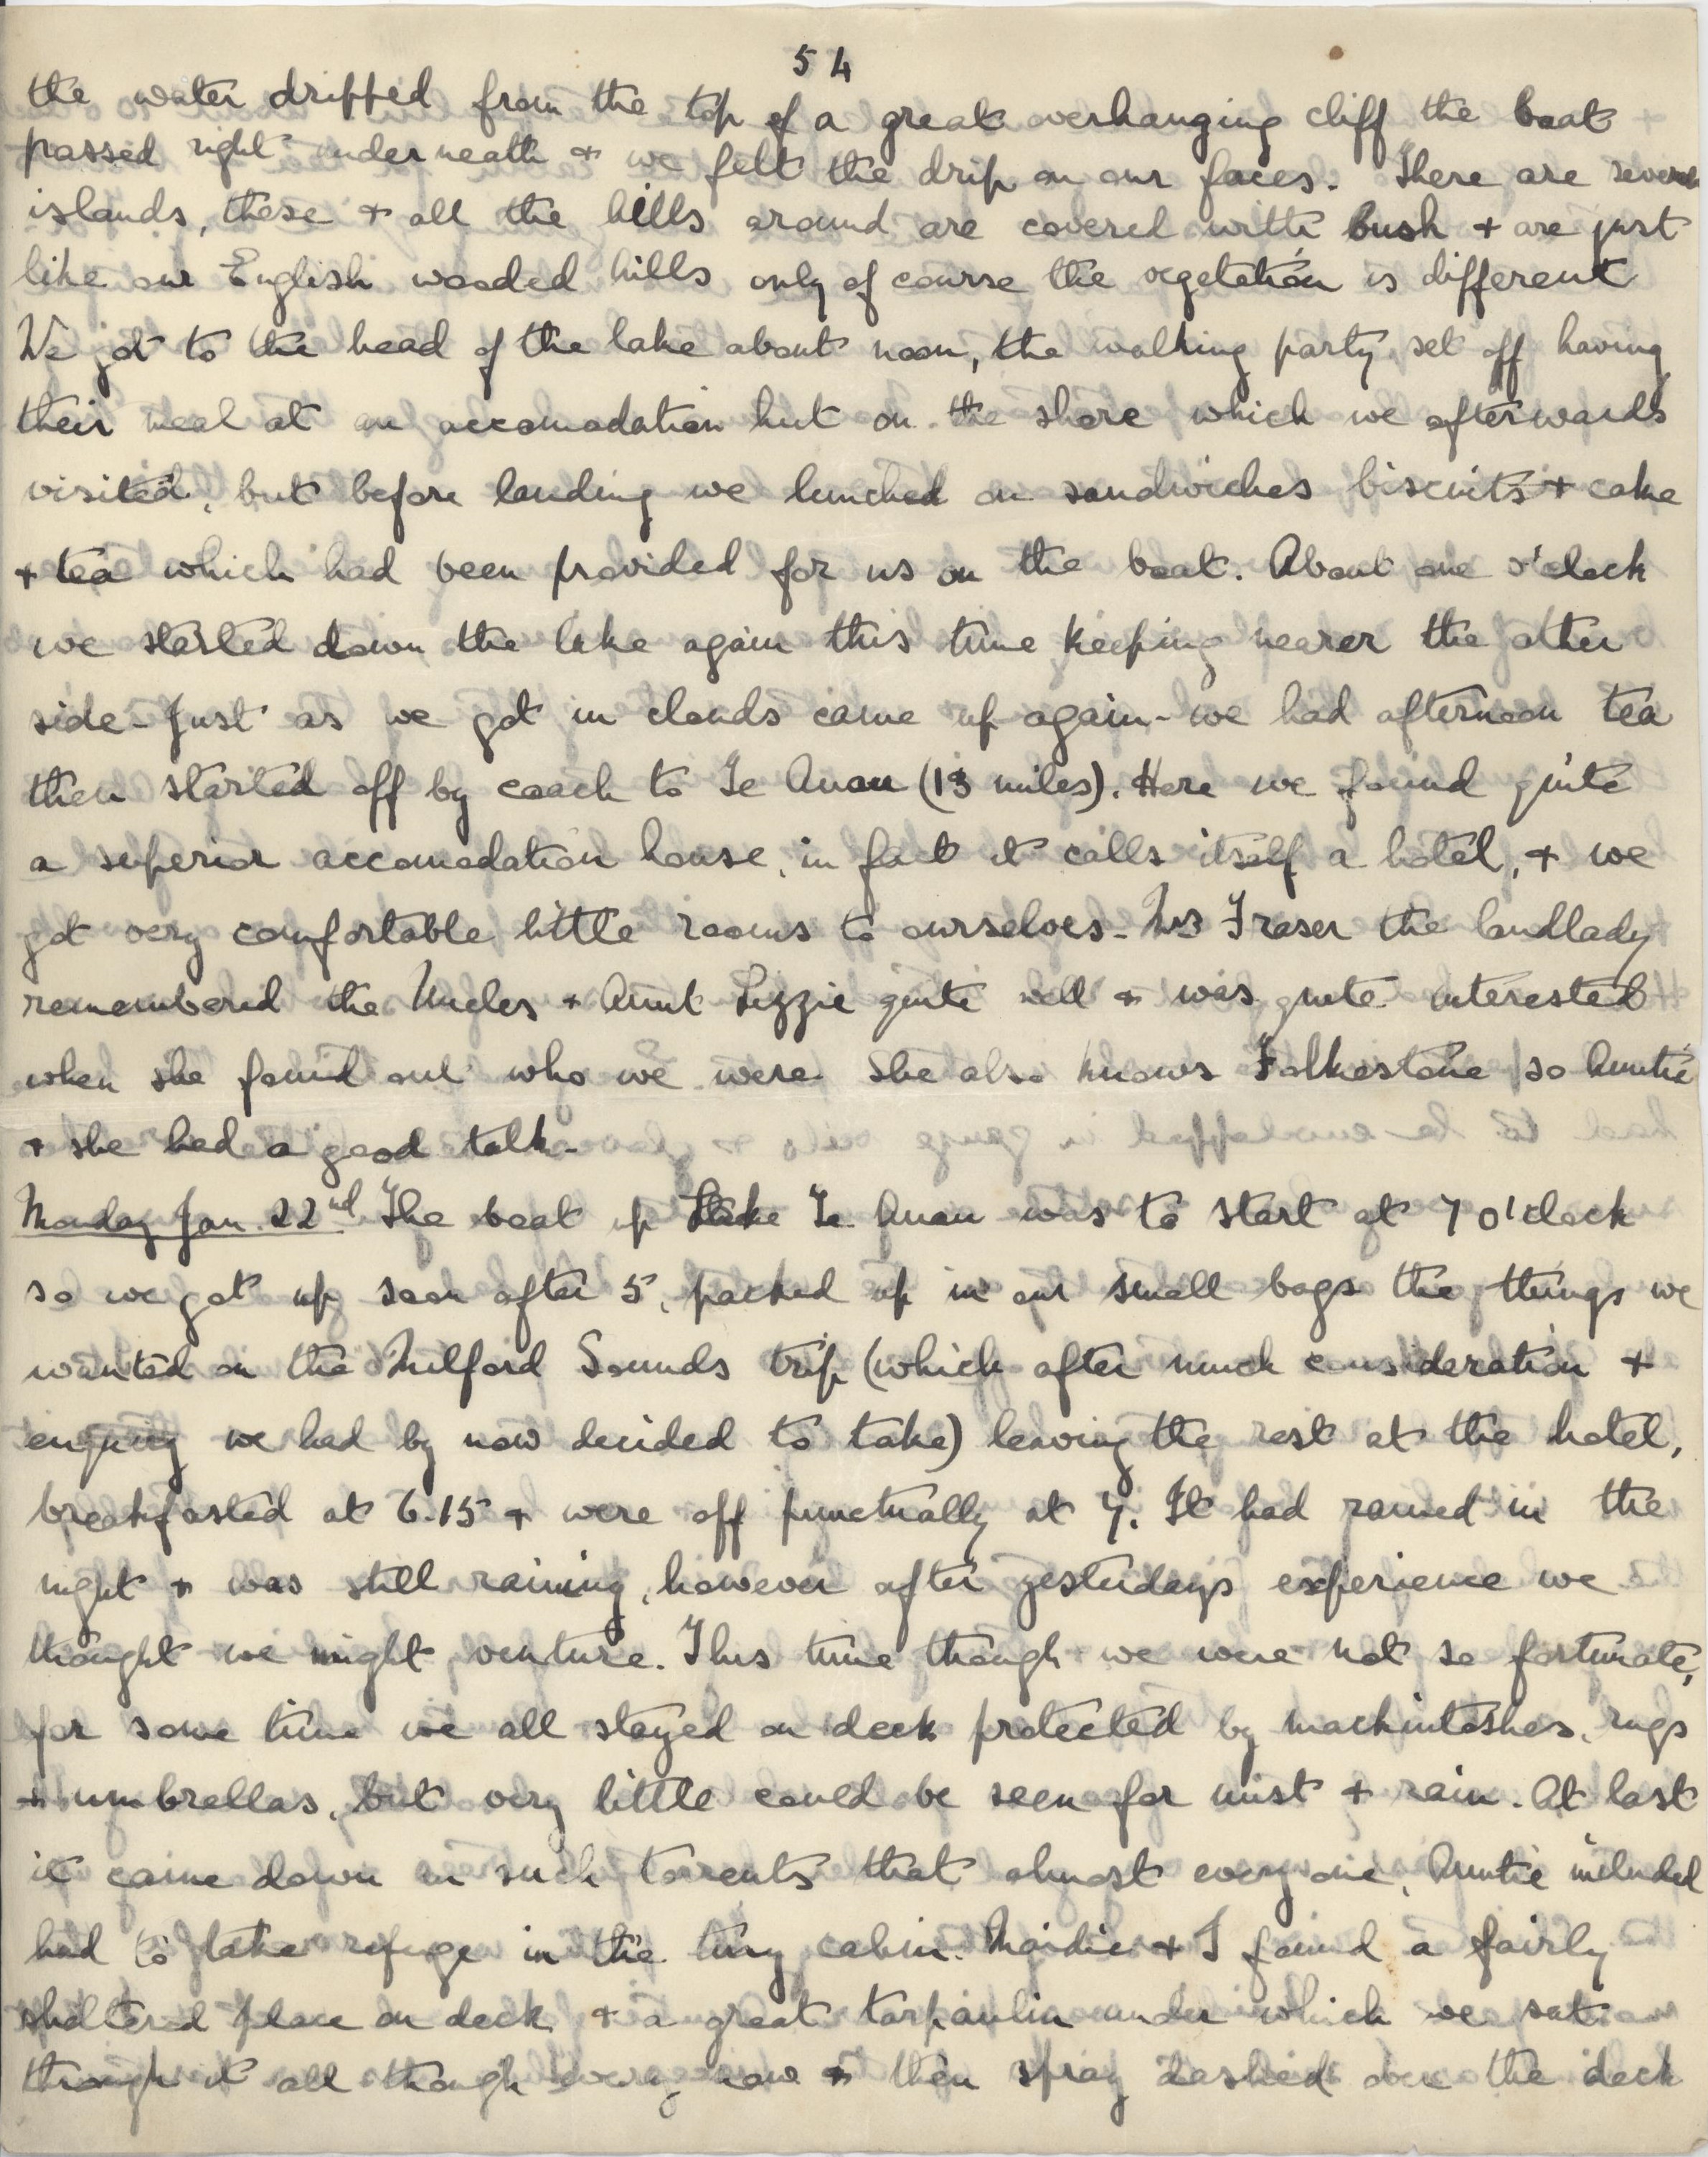 54
the water dripped from the top of a great overhanging cliff the boat
passed right underneath + we felt the drip on our faces. There are several
islands, these + all the hills around are covered with bush + are just
like our English wooded hills only of course the vegetation is different
We got to the head of the lake about noon, the walking party set off having
their meal at an accomodation hut on the shore which we afterwards
visited, but before landing we lunched on sandwiches biscuits + cake
+ tea which had been provided for us on the boat. About one o'clock
we started down the lake again this time keeping nearer the other
side - Just as we got in clouds came up again - we had afternoon tea
then started off by coach to Te Anau (13 miles). Here we found quite
a superior accomodation house, in fact it calls itself a hotel, + we
got very comfortable little rooms to ourselves - Mrs Fraser the landlady
remembered the Uncles + Aunt Lizzie quite well + was quite interested
when she found out who we were She also knows Folkestone so Auntie
+ she had a good talk -
Monday Jan. 22nd The boat up Lake Te Anau was to start at 7 o'clock
so we got up soon after 5, packed up in our small bags the things we
wanted on the Milford Sounds trip (which after much consideration +
enquiry we had by now decided to take) leaving the rest at the hotel,
breakfasted at 6.15 + were off punctually at 7. It had rained in the
night + was still raining, however after yesterdays experience we
thought we might venture. This time though we were not so fortunate,
for some time we all stayed on deck protected by mackintoshes, rugs
+ umbrellas, but very little could be seen for mist + rain. At last
it came down in such torrents that almost every one, Auntie included
had to take refuge in the tiny cabin. Maidie + I found a fairly
sheltered place on deck + a great tarpaulin under which we sat
through it all though every now + then spray dashed over the deck